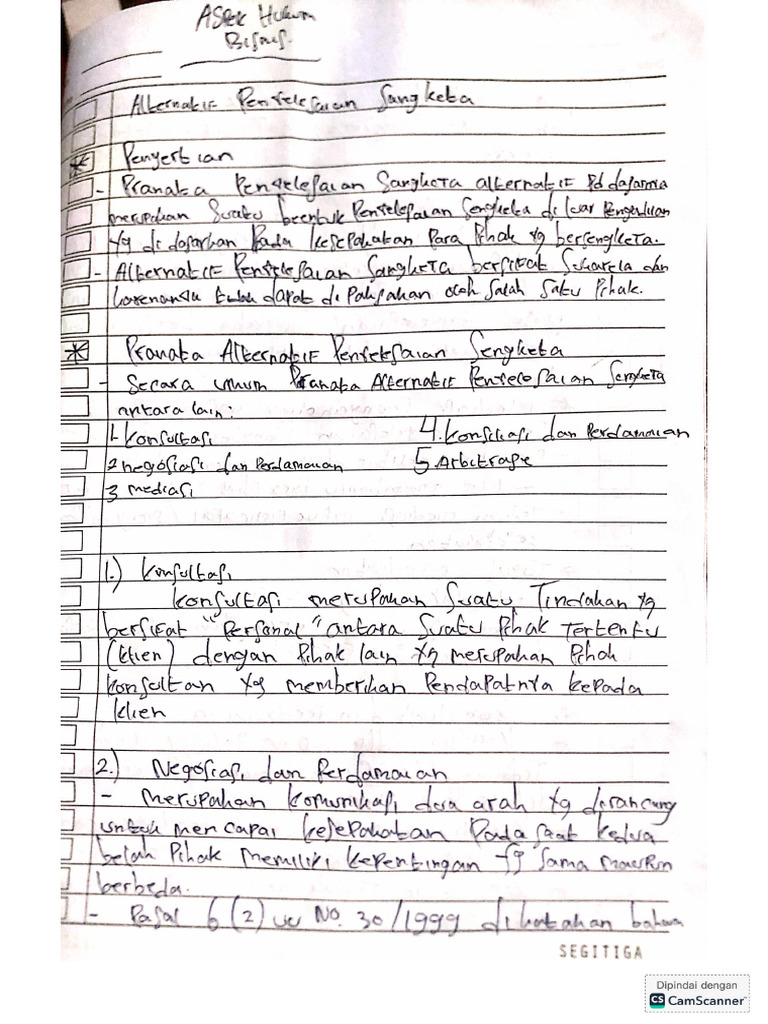 Aspek Hukum
Bisnis.
Alternatif Penyelesaian Sangketa
* Pengertian
- Pranata Penyelesaian Sangketa alternatif Pd dasarnya
merupakan Suatu beentuk Penyelesaian Sengketa di luar Pengadilan
Yg di dasarkan Pada kesepakatan Para Pihak Yg bersengketa.
- Alternatif Penyelesaian Sangketa bersifat Sukarela dan
karenanya tidak dapat di Paksakan oleh Salah Satu Pihak.
* Pranata Alternatif Penyelesaian Sengketa
- Secara umum Pranata Alternatif Penyelesaian Sengketa
antara lain:
1. Konsultasi
4. Konsiliasi dan Perdamaian
2 negosiasi dan Perdamaian
5 Arbitrase
3 mediasi
1.) Konsultasi
Konsultasi merupakan Suatu Tindakan Yg
bersifat "Personal" antara Suatu Pihak Tertentu
(klien) dengan Pihak lain Yg merupakan Pihak
konsultan Yg memberikan Pendapatnya kepada
klien
2.) Negosiasi dan Perdamaian
- merupakan komunikasi dua arah Yg dirancang
untuk mencapai kesepakatan Pada saat kedua
belah Pihak memiliki kepentingan Yg sama maupun
berbeda.
- Pasal 6 (2) uu No. 30/1999 dikatakan bahwa
SEGITIGA
Dipindai dengan
CS CamScanner